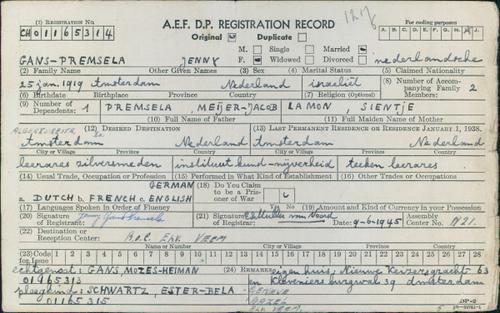 (1) REGISTRATION NO.
CH01165314
A.E.F. D.P. REGISTRATION RECORD
Original Duplicate
For coding purposes
A. B. C. D. E. F. G. H. I. J.
GANS-PREMSELA JENNY
M. Single Married
F. Widowed Divorced
nederlandsche
(2) Family Name Other Given Names (3) Sex (4) Marital Status (5) Claimed Nationality
25 jan. 1919 Amsterdam Nederland israëliet
(6) Birthdate Birthplace Province Country (7) Religion (Optional) (8) Number of Accompanying Family Members: 2
(9) Number of Dependents: 1 PREMSELA, MEIJER-JACOB LAMON SIENTJE
(10) Full Name of Father (11) Full Maiden Name of Mother
(12) DESIRED DESTINATION (13) LAST PERMANENT RESIDENCE OR RESIDENCE JANUARY 1, 1938.
Amsterdam Nederland Amsterdam Nederland
City or Village Province Country City or Village Province Country
leerares zilversmeden instituut kunst-nijverheid teeken leerares
(14) Usual Trade, Occupation or Profession (15) Performed in What Kind of Establishment (16) Other Trades or Occupations
GERMAN
a. DUTCH b. FRENCH c. ENGLISH
(18) Do You Claim to be a Prisoner of War
(17) Languages Spoken in Order of Fluency Yes No (19) Amount and Kind of Currency in your Possession
(20) Signature of Registrant: (21) Signature of Registrar: Date: 9-6-1945 Assembly Center No. N21.
(22) Destination or Reception Center:
Name or Number City or Village Province Country
(23) Code for Issue 1 2 3 4 5 6 7 8 9 10 11 12 13 14 15 16 17 18 19 20 21 22 23 24 25 26 27 28
echtgenoot: GANS, MOZES-HEIMAN (24) REMARKS eigen huis, Nieuwe Keizersgracht 63
01165313 en Kloveniersburgwal 39 Amsterdam
pleegkind: SCHWARTZ, ESTER-BELA
01165315
DP-2